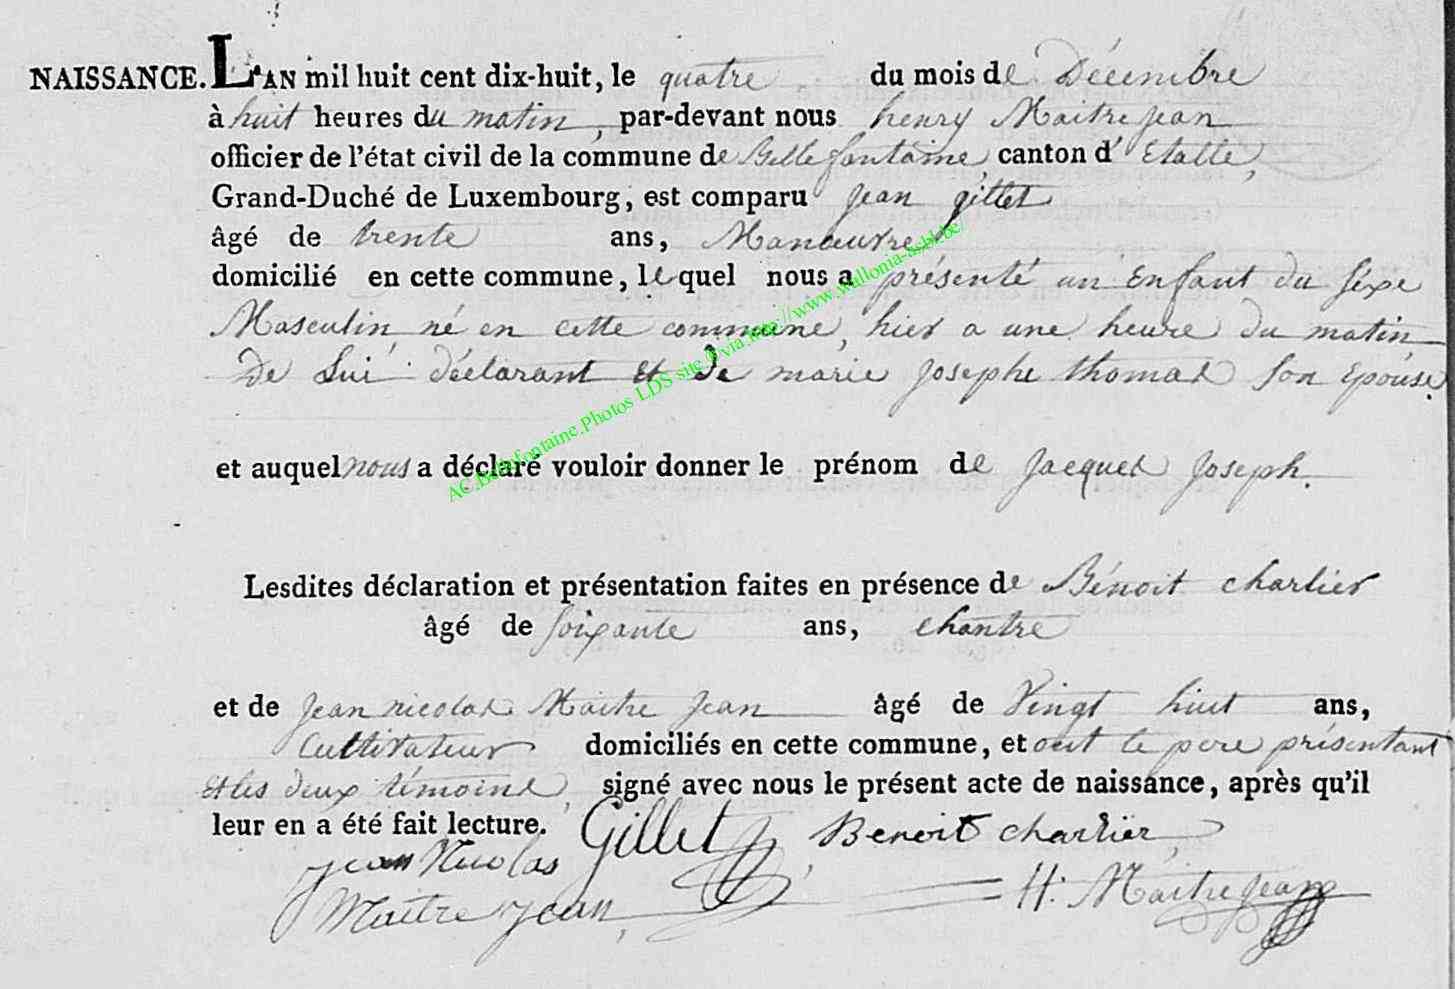 NAISSANCE. L'AN mil huit cent dix-huit, le quatre du mois de Décembre
à huit heures du matin, par-devant nous henry Maitrejean
officier de l'état civil de la commune de Bellefontaine, canton d'Etalle,
Grand-Duché de Luxembourg, est comparu jean gillet
âgé de trente ans, Manœuvre
domicilié en cette commune, lequel nous a présenté un Enfant du séxe
Masculin, né en cette commune, hier a une heure du matin
de Lui déclarant et de marie josephe thomas son Epouse.
AC.Bellefontaine.Photos LDS site @via.http://www.wallonia-asbl.be/
et auquel nous a déclaré vouloir donner le prénom de jacques joseph.
Lesdites déclaration et présentation faites en présence de Bénoit charlier
âgé de soixante ans, chantre
et de jean nicolas Maitre jean âgé de Vingt huit ans,
Cultivateur domiciliés en cette commune, et ont le pere présentant
et les deux témoins, signé avec nous le présent acte de naissance, après qu'il
leur en a été fait lecture. Gillet Benoit charlier
jean Nicolas
Maitre jean, H. Maitrejean